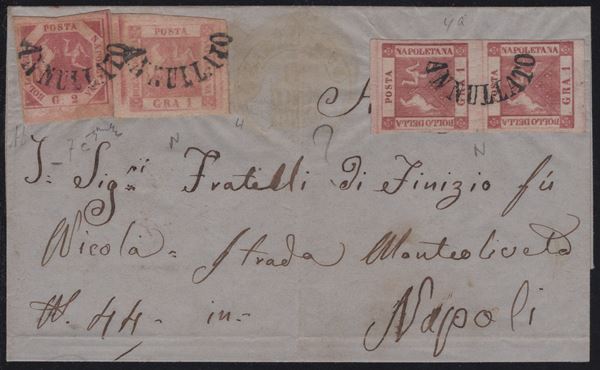 POSTA NAPOLETANA BOLLO DELLA G. 2
POSTA GRA 1
ANNULLATO
ANNULLATO
POSTA NAPOLETANA GRA 1 BOLLO DELLA
POSTA NAPOLETANA GRA 1 BOLLO DELLA
ANNULLATO
N
N
Sig.ri Fratelli di Finizio fù
Nicola = Strada Monteoliveto
44 - in =
Napoli